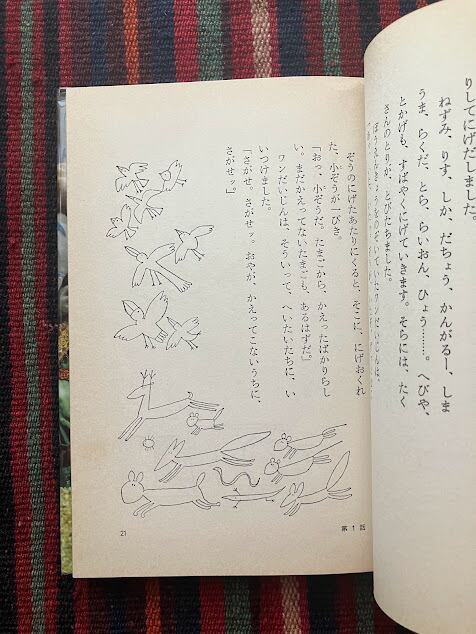 りしてにげだしました。
ねずみ、りす、しか、だちょう、かんがるー、しま
うま、らくだ、とら、らいおん、ひょう……。へびや、
とかげも、すばやくにげていきます。そらには、たく
さんのとりが、とびたちました。
ぼうえんきょうをのぞいていたワンだいじんは、
ぞうのにげたあたりにくると、そこに、にげおくれ
た、小ぞうが一ぴき。
「おっ、小ぞうだ。たまごから、かえったばかりらし
い。まだかえってないたまごも、あるはずだ」
ワンだいじんは、そういって、へいたいたちに、い
いつけました。
「さがせ、さがせッ。おやが、かえってこないうちに、
さがせッ」
21
第1話